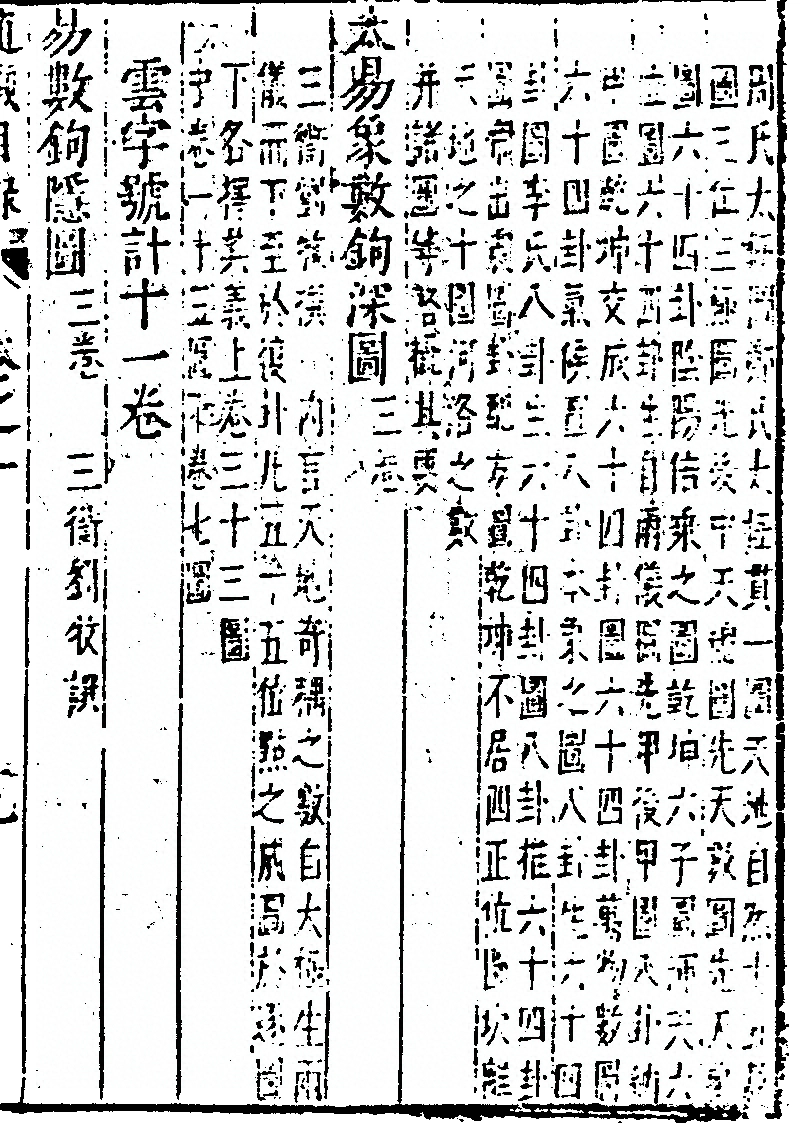 周氏太極圖鄭氏太極貫一圖天地自然十五
圖三位三極圖先後中天圖先天數圖先天
圖六十四卦陰陽倍乘之圖乾坤六子圖渾天六
位圖六十四卦生自兩儀圖先甲後甲圖八卦納
甲圖乾坤交成六十四卦圖六十四卦萬物數圖
六十四卦氣候圖八卦本象之圖八卦生六十四
卦圖李氏八卦生六十四卦圖八卦推六十四卦
圖帝出震圖卦配方圖乾坤不居四正位圖坎離
天地之十圖河洛之數
并諸圖等畧概其要
大易象數鉤深圖 三卷
三衢劉牧撰 內言天地奇耦之數自太極生兩
儀而下至於復卦凡五十五位點之成圖於逐圖
下各釋其義上卷三十三圖
中卷一十五圖下卷七圖
雲字號計十一卷
易數鉤隱圖 三卷 三衢劉牧譔
道藏目錄